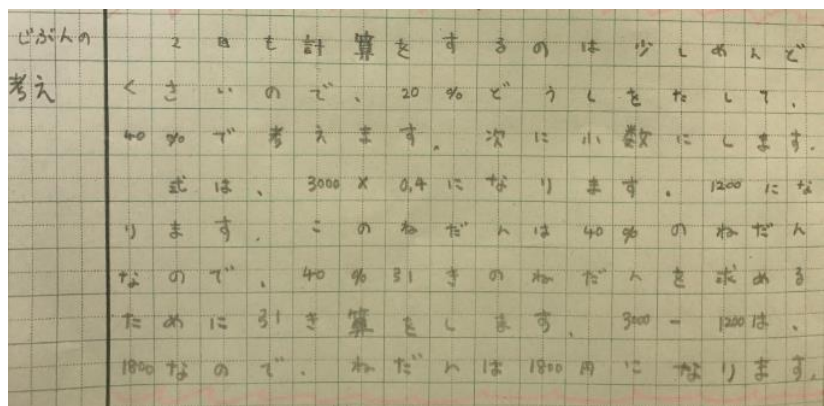 じぶんの
考え
2回も計算をするのは少しめんど
くさいので、20%どうしをたして、
40%で考えます。次に小数にします。
式は、3000×0.4になります。1200にな
ります。このねだんは40%のねだん
なので、40%引きのねだんを求める
ために引き算をします。3000-1200は、
1800なので、ねだんは1800円になります。